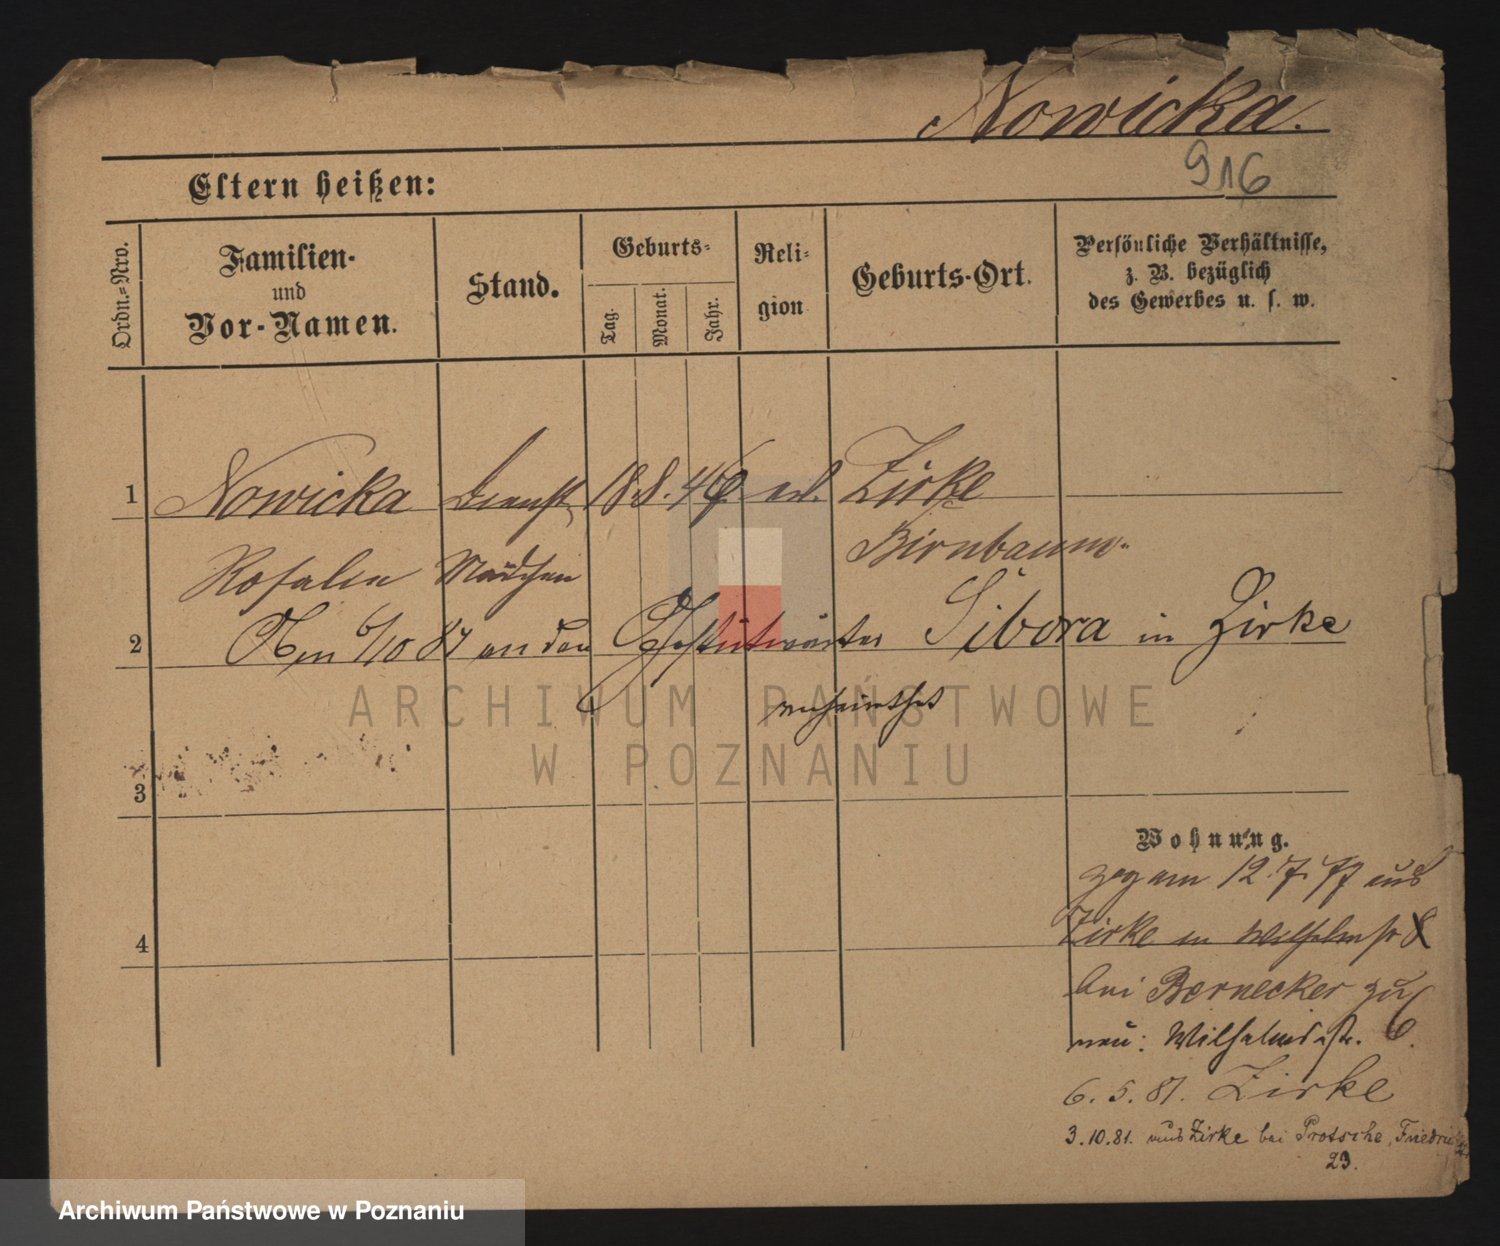 Nowicka.
916
Eltern heißen:
Ordn.=Nro.
Familien-
und
Vor-Namen.
Stand.
Geburts-
Tag.
Monat.
Jahr.
Reli-
gion
Geburts-Ort.
Persönliche Verhältnisse,
z. B. bezüglich
des Gewerbes u. s. w.
1 Nowicka Dienst 18. 8. 46 ev. Zirke
Rosalie Mädchen Birnbaum
2 Am 6/10 87 an den Gestütwärter Sibora in Zirke
verheirathet
ARCHIWUM PAŃSTWOWE
W POZNANIU
3
Wohnung.
zog am 12. 7. 77 aus
4 Zirke in Wilhelmstr 8
bei Bernecker zu
neu: Wilhelmsstr. 6.
6. 5. 81. Zirke
3.10.81. aus Zirke bei Protsche, Friedrich
23.
Archiwum Państwowe w Poznaniu